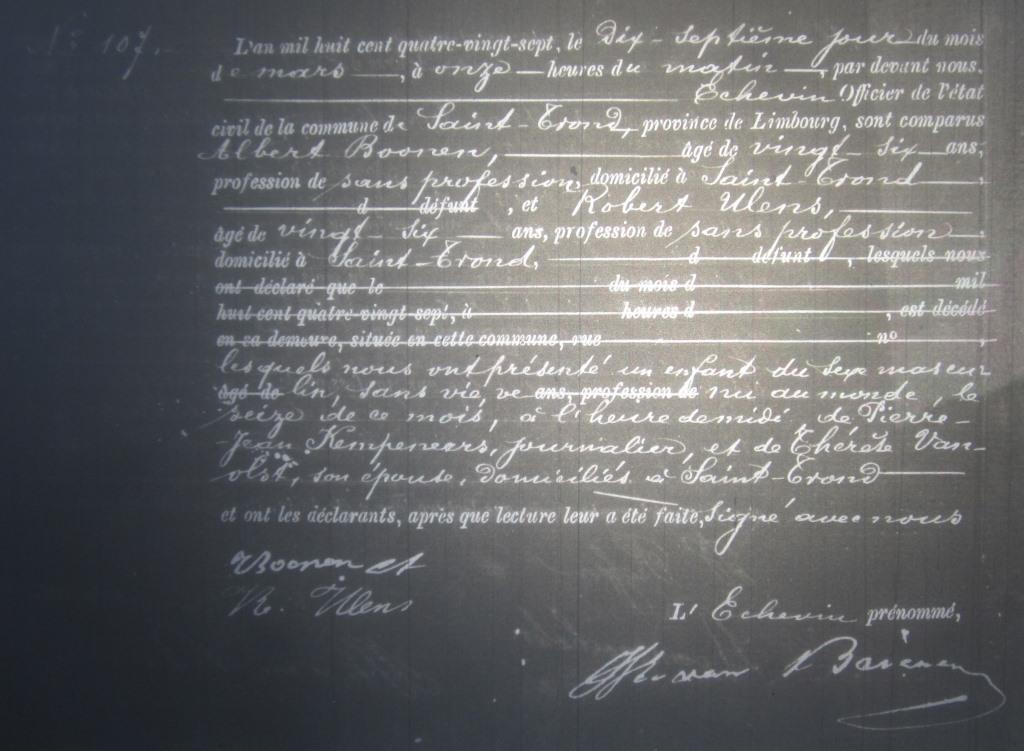 Nº 107.
L'an mil huit cent quatre-vingt-sept, le Dix-Septième jour du mois
de mars, à onze heures du matin, par devant nous.
Echevin Officier de l'état
civil de la commune de Saint-Trond, province de Limbourg, sont comparus
Albert Boonen, âgé de vingt six ans,
profession de sans profession, domicilié à Saint-Trond,
d défunt , et Robert Ulens,
âgé de vingt six ans, profession de sans profession,
domicilié à Saint-Trond, d défunt , lesquels nous
ont déclaré que le du mois d mil
huit cent quatre-vingt-sept, à heures d , est décédé
en sa demeure, située en cette commune, rue nº ,
lesquels nous ont présenté un enfant du sexe mascu-
âgé de lin, sans vie, ve ans, profession de nu au monde, le
seize de ce mois, à l'heure de midi de Pierre-
Jean Kempeneers, journalier, et de Thérèse Van-
olst, son épouse, domiciliés à Saint-Trond
et ont les déclarants, après que lecture leur a été faite, signé avec nous
Boonen A
R. Ulens
L'Echevin prénommé,
van